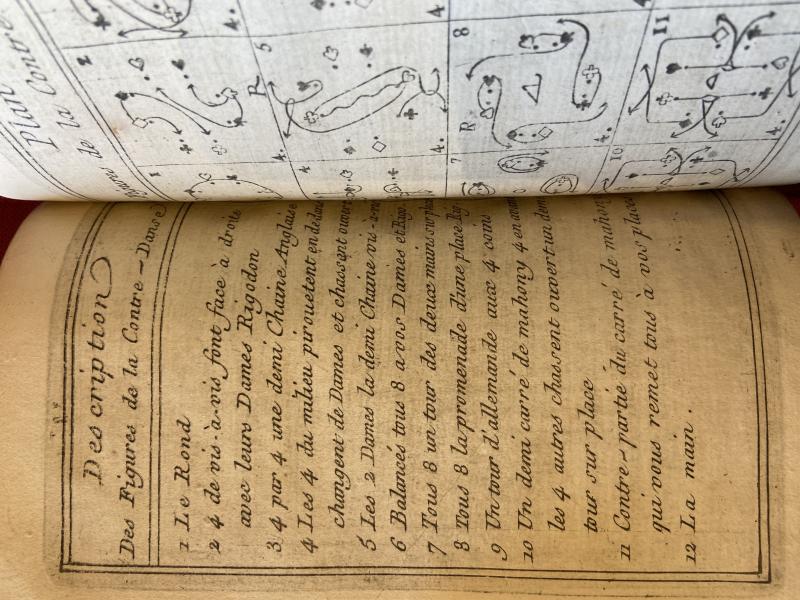 Description
Des Figures de la Contre-Danse
1 Le Rond
2 4 de vis-à-vis font face à droite
avec leurs Dames Rigodon
3 4 par 4 une demi Chaine Anglaise
4 Les 4 du milieu pirouetent en
changent de Dames et chassent
5 Les 2 Dames la demi Chaine vis-à-vis
6 Balancés tous 8 a vos Dames et
7 Tous 8 un tour des deux mains
8 Tous 8 la promenade d'une place
9 Un tour d'allemande aux 4 coins
10 Un demi carré de mahony 4 en
les 4 autres chassent ouvert un
tour sur place
11 Contre-partie du carré de mahony
qui vous remet tous à vos places
12 La main.
Plan
de la Contre
1
2
R
4.
5
4.
4
7
R
8
4.
10
11
4.